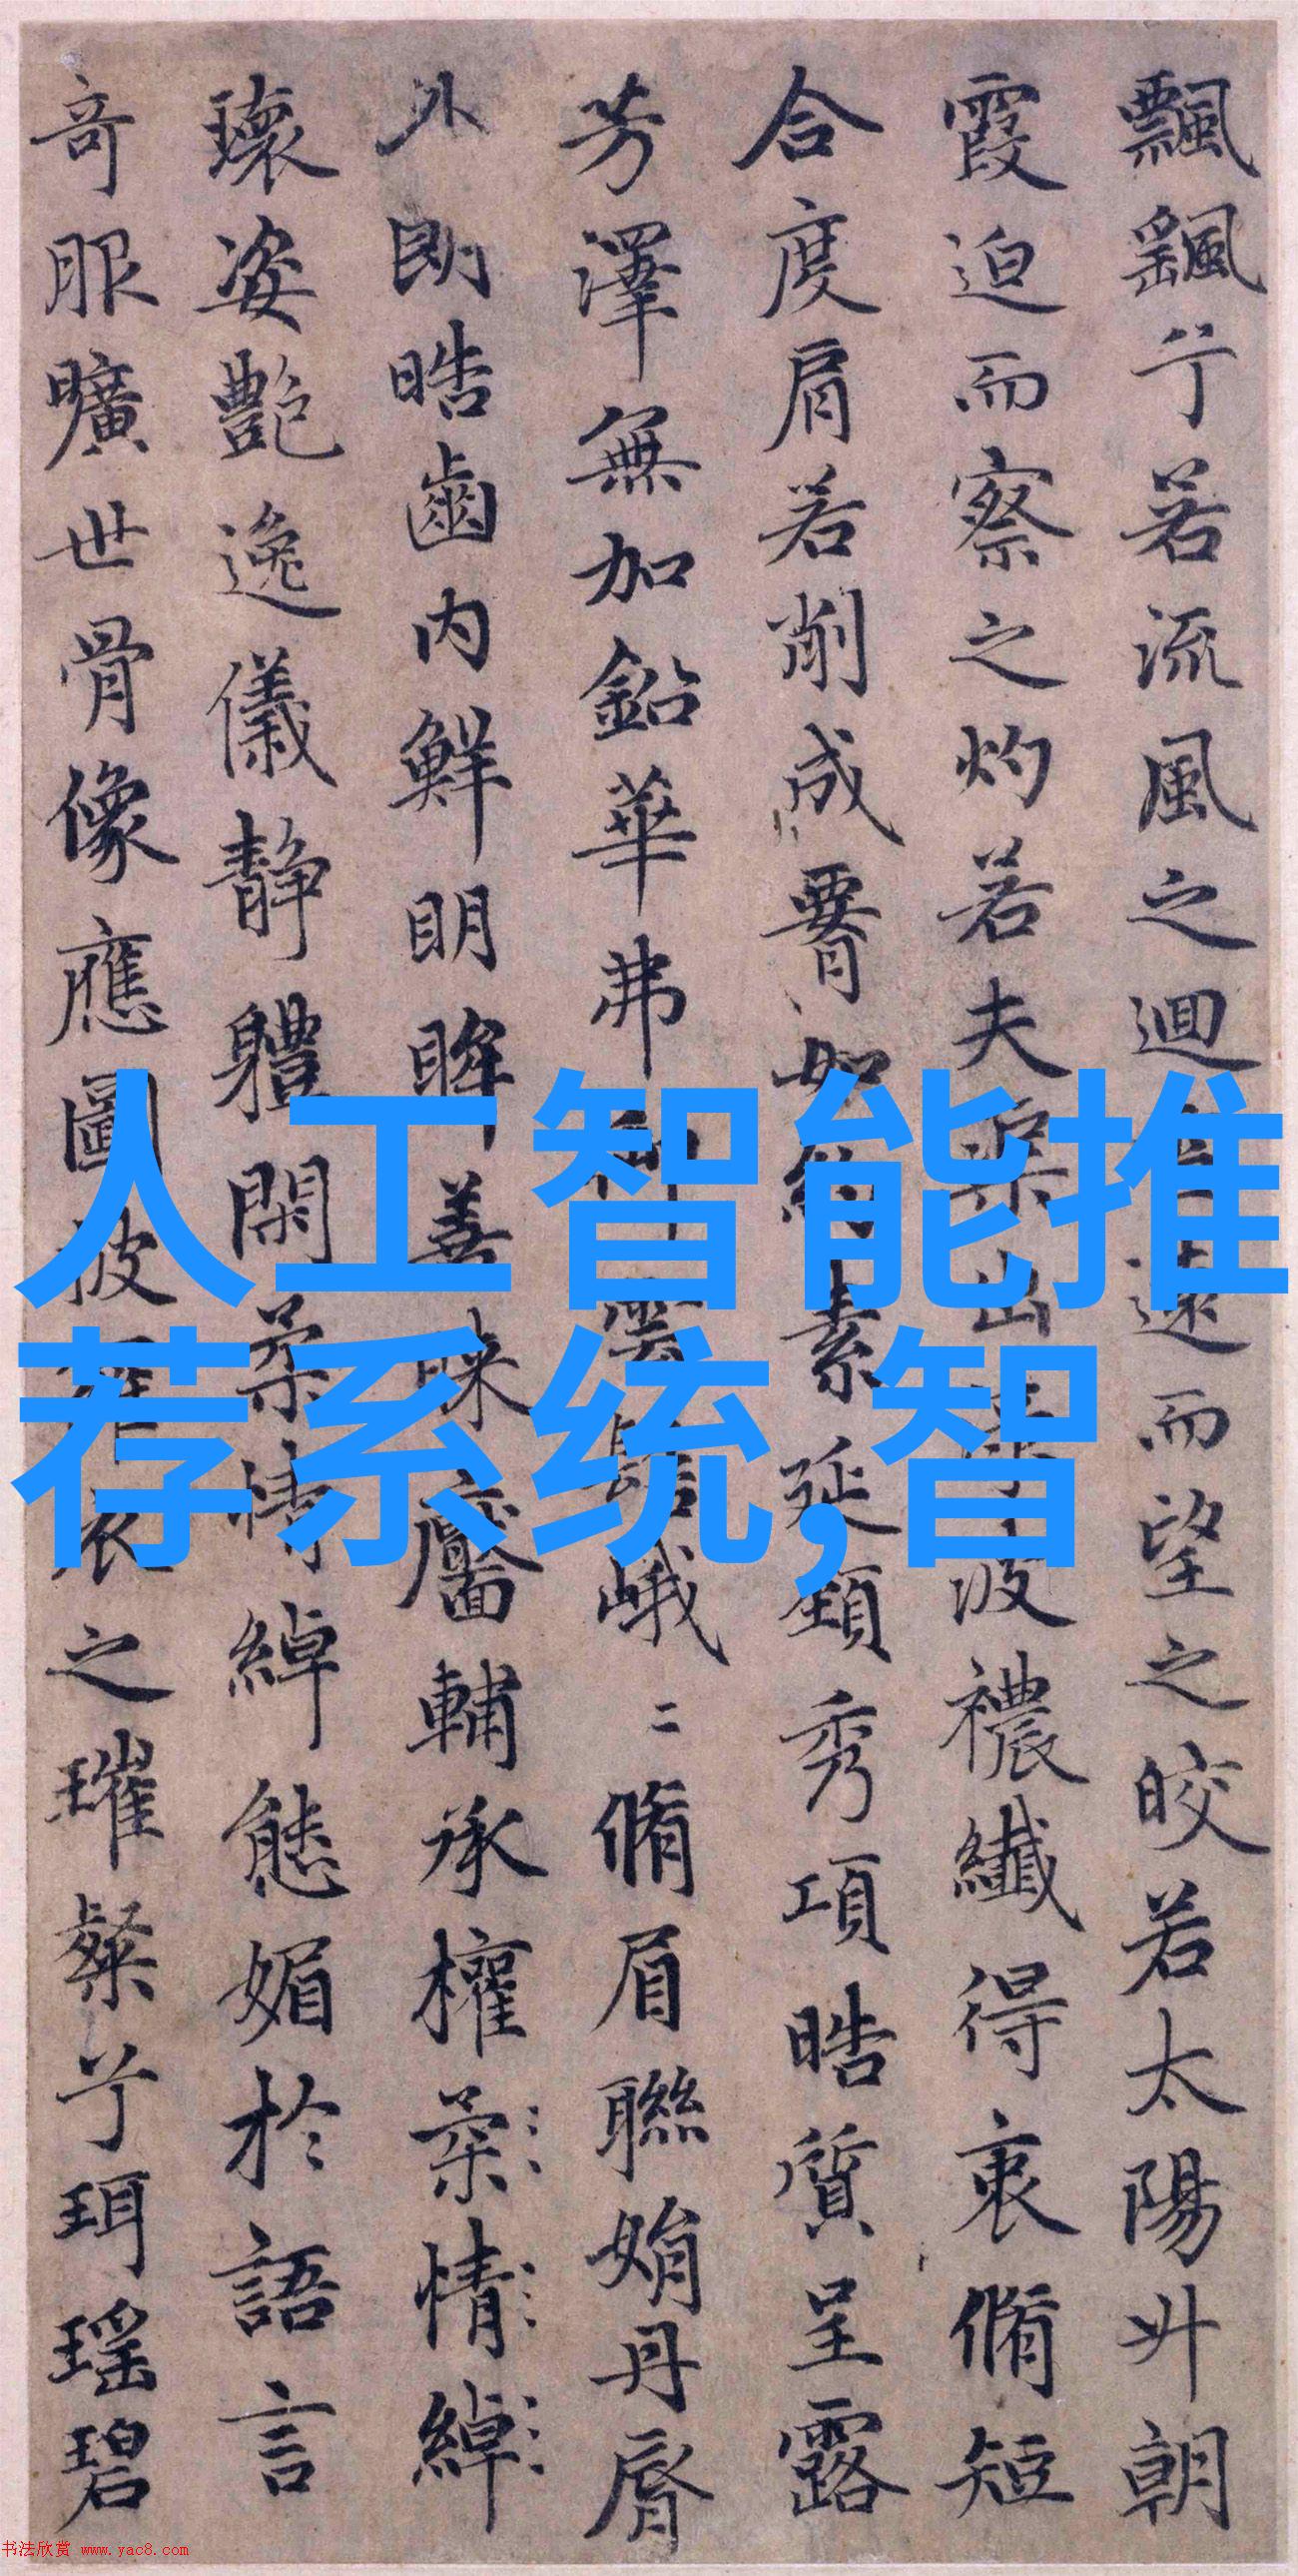 飄飖兮若流風之迴而望之皎若太陽升朝
霞迫而察之灼若夫出波襛纖得衷脩短
合度肩若削成腰如素延頸秀項皓質呈露
芳澤無加鉛華弗峨二脩眉聯娟丹脣
外朗皓齒內鮮明眸善睞靨輔承權柔情綽
瓌姿艷逸儀靜體閑柔情綽態媚於語言
奇服曠世骨像應圖披衣之璀粲兮珥瑤碧
人工智能推
荐系统,智
书法欣赏 www.yac8.com